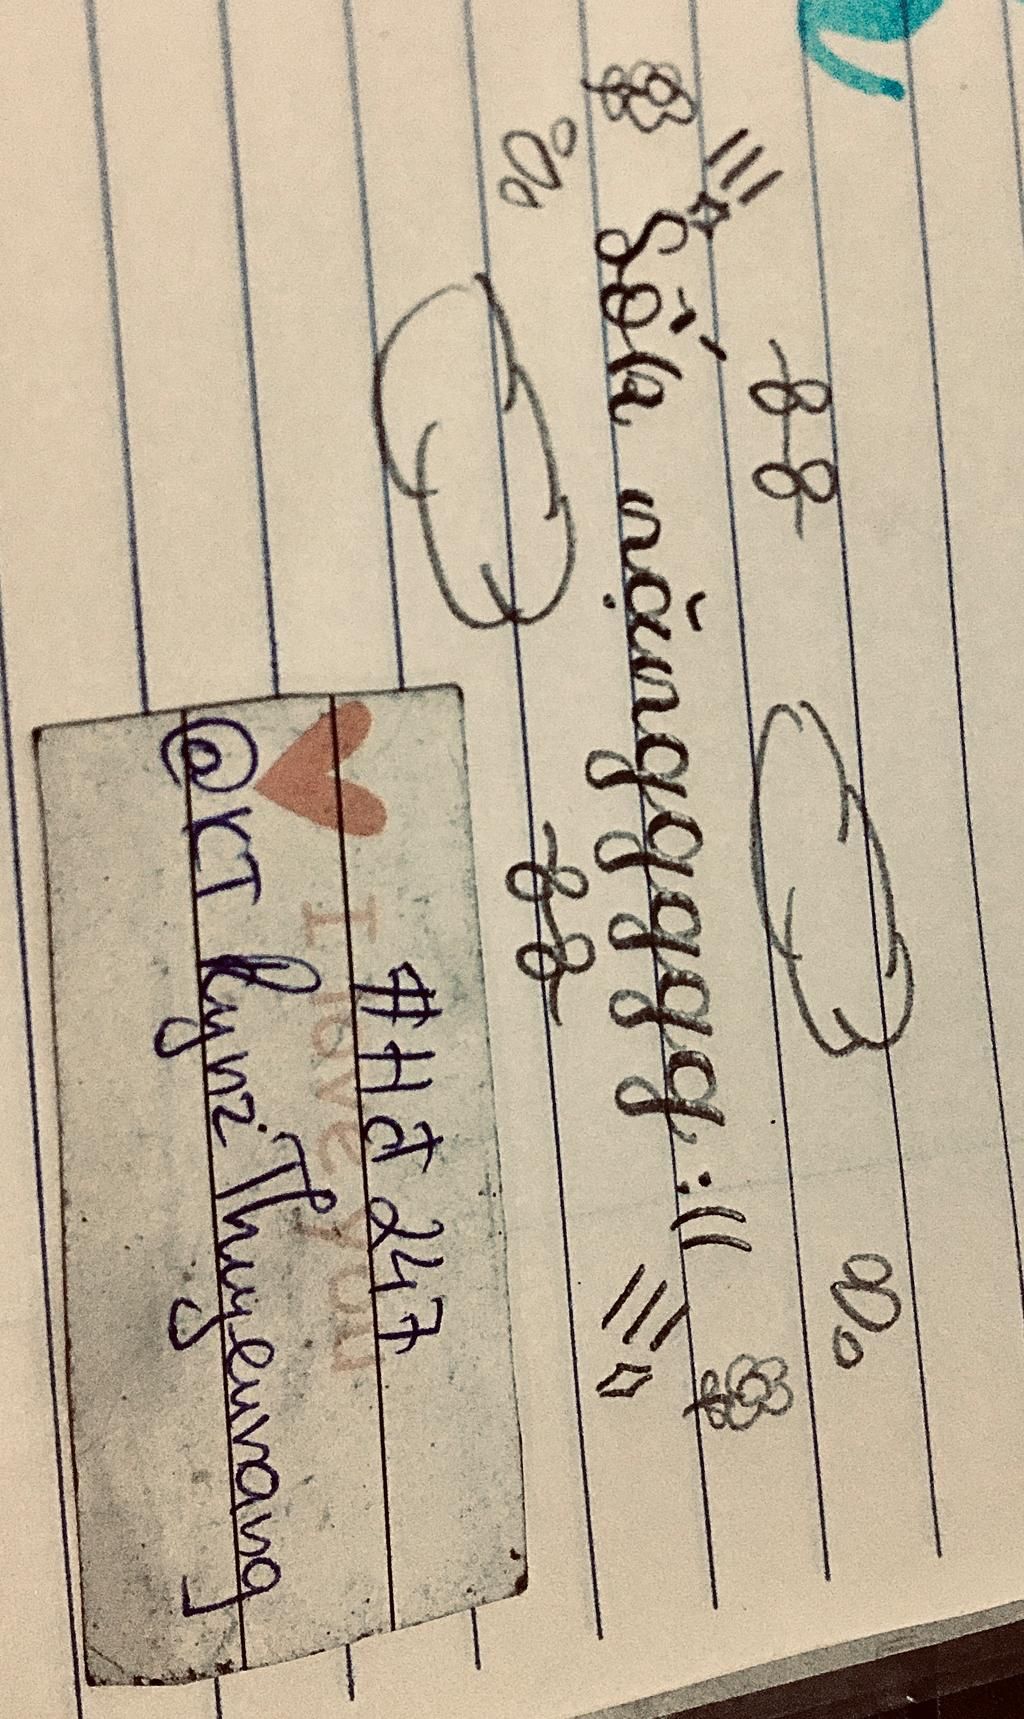 Sốk nặnggggg :((
#Hđ 247
I love you
@KT lynz Thuyenang